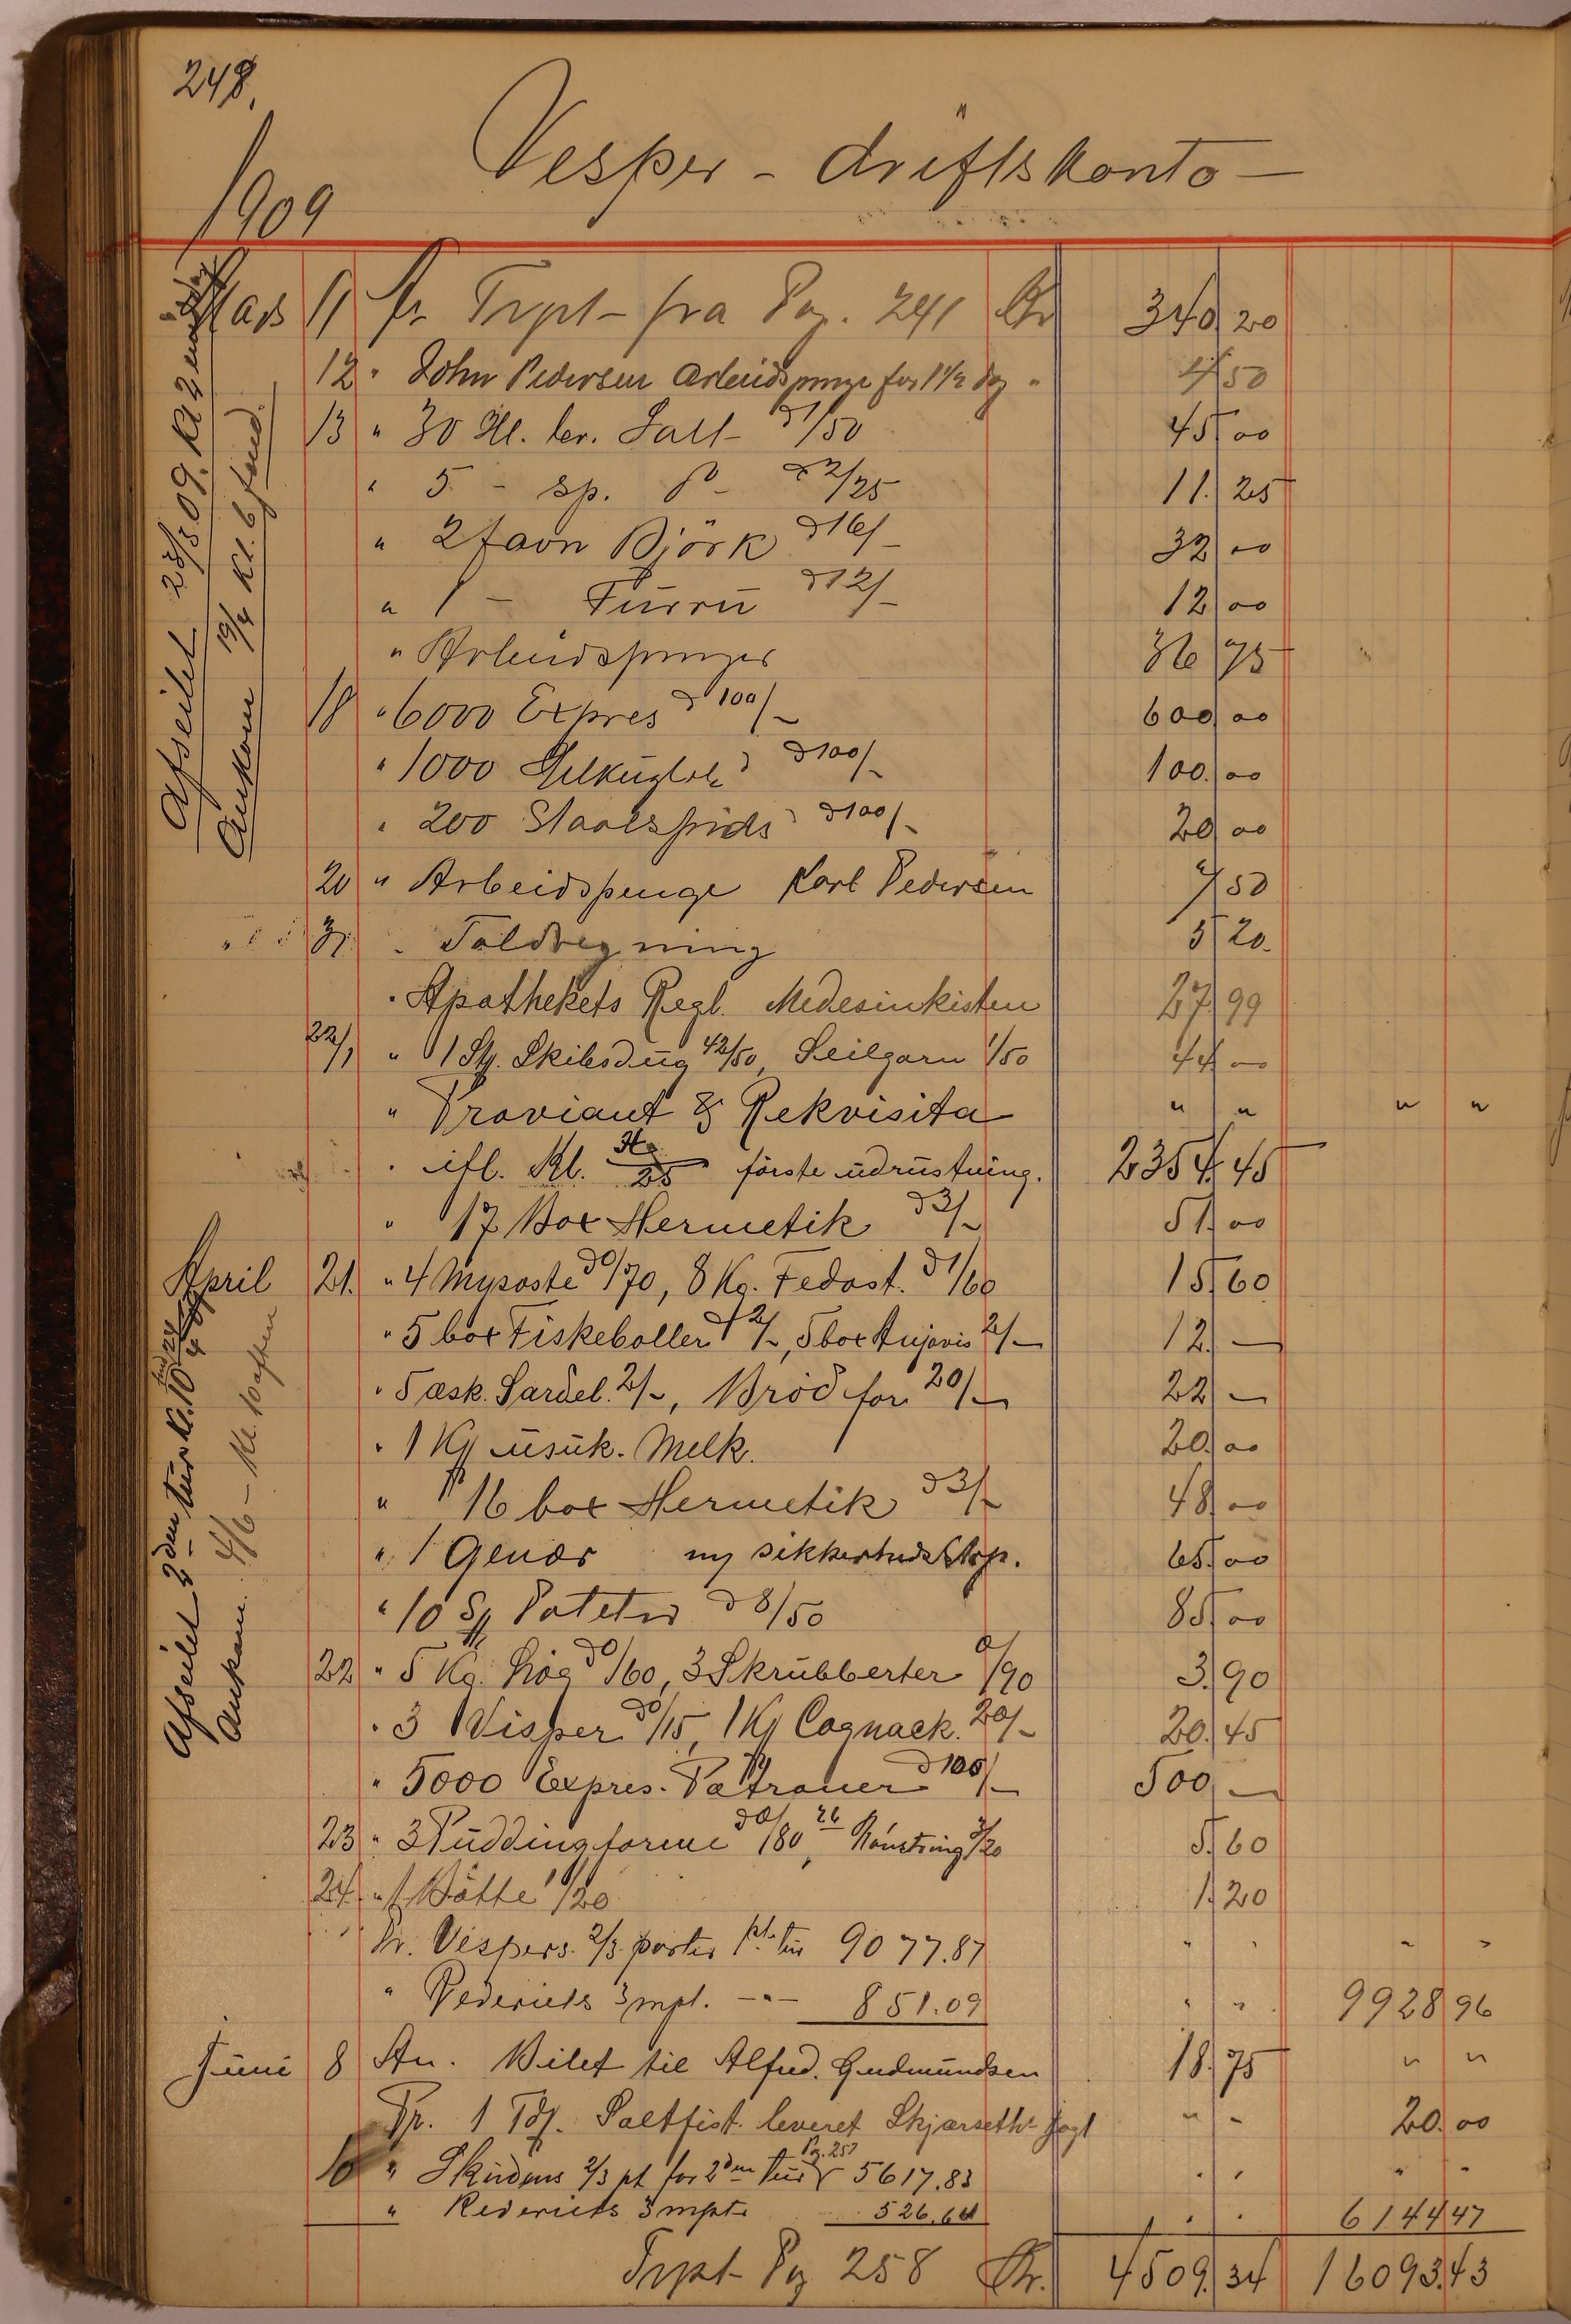 248.
Vesper - driftskonto -
1909
Mars 11 Pr Trpt - fra Pag. 241 Kr 340 20
12 " John Pedersen Arbeidspenge for 1 1/2 dag " 4 50
13 " 30 Hl. ter. Salt - à 1/50 45 00
" 5 - sp. do - à 2/25 11. 25
" 2 favn Björk à 16/- 32 00
" 1 - Furru à 12/- 12 00
" Arbeidspenger 36 75
18 " 6000 Expres à 100/- 600 00
" 1000 à 100/- 100. 00
" 200 Staalspids à 100/- 20 00
20 " Arbeidspenge Karl Pedersen 4/50
31 " Toldregning 5 20.
" Apothekets Regl. Medesinkisten 27 99
22/1 " 1 Stk. Skibsdug 42/50, Seilgarn 1/50 44 00
" Proviant & Rekvisita " " " "
" ifl. Kl. 25 förste udrustning. 2354. 45
" 17 Box Hermetik à 3/- 51. 00
April 21. " 4 Mysoste à 0/70, 8 Kg. Fedost. à 1/60 15 60
" 5 box Fiskeboller à 2/-, 5 box Anjovis 2/- 12. -
" 5 æsk. Sardel. 2/-, Bröd for 20/- 22 -
" 1 Ks usuk. Melk. 20. 00
" 16 box Hermetik à 3/- 48 00
" 1 Gevær ny sikkerheds 65. 00
" 10 Sk Poteter à 8/50 85 00
22 " 5 Kg. Lög à 0/60, 3 Skrubberter 0/90 3. 90
" 3 Visper à 0/15, 1 Ks Cognack. 20/- 20. 45
" 5000 Expres. Patroner à 100/- 500 -
23 " 3 Puddingforme à 0/80, 3/20 5. 60
24. " 1 Bötte 1/20 1. 20
Pr. Vespers 2/3 parter 1ste tur 9077.87 " " " "
" Rederiets 3 mpt. - " - 851.09 " " 9928 96
Juni 8 An. Bilet til Alfred. Gudmundsen 18. 75 " "
Pr. 1 Td. Saltfisk leveret Skjarseth - Jagt " - 20. 00
10 " Skudens 2/3 pt for 2den tur Pg. 257 5617.83 " " " "
" Rederiets 3 mpt 526.64 " " 6144 47
Trpt - Pag 258 Kr. 4509. 34 16093. 43
Afseilet 23/3 09. Kl 2
Ankom 19/4 Kl. 6 fmd.
Afseilet 2den tur Kl. 10 fmd 24/4 09
Ankom. 4/6 - Kl. 10 aften